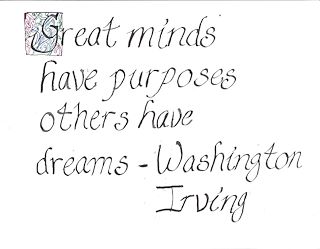 Great minds
have purposes
others have
dreams - Washington
Irving